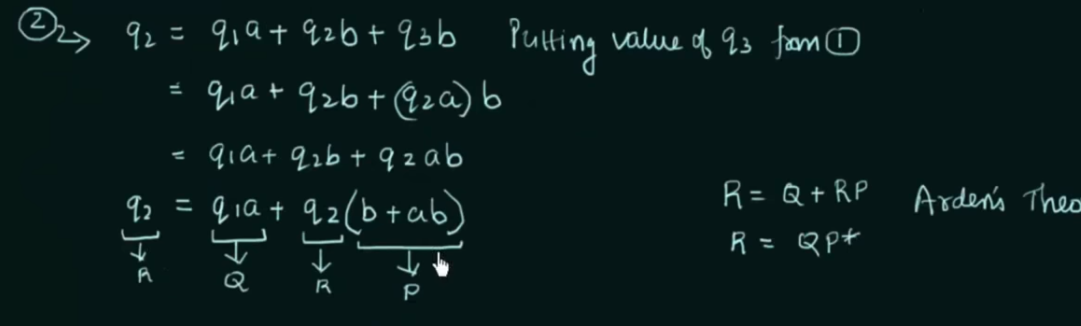 ② → q2 = q1a + q2b + q3b Putting value of q3 from ①
= q1a + q2b + (q2a) b
= q1a + q2b + q2ab
q2 = q1a + q2 (b + ab)
R Q R P
R = Q + RP Arden's Theo
R = QP*